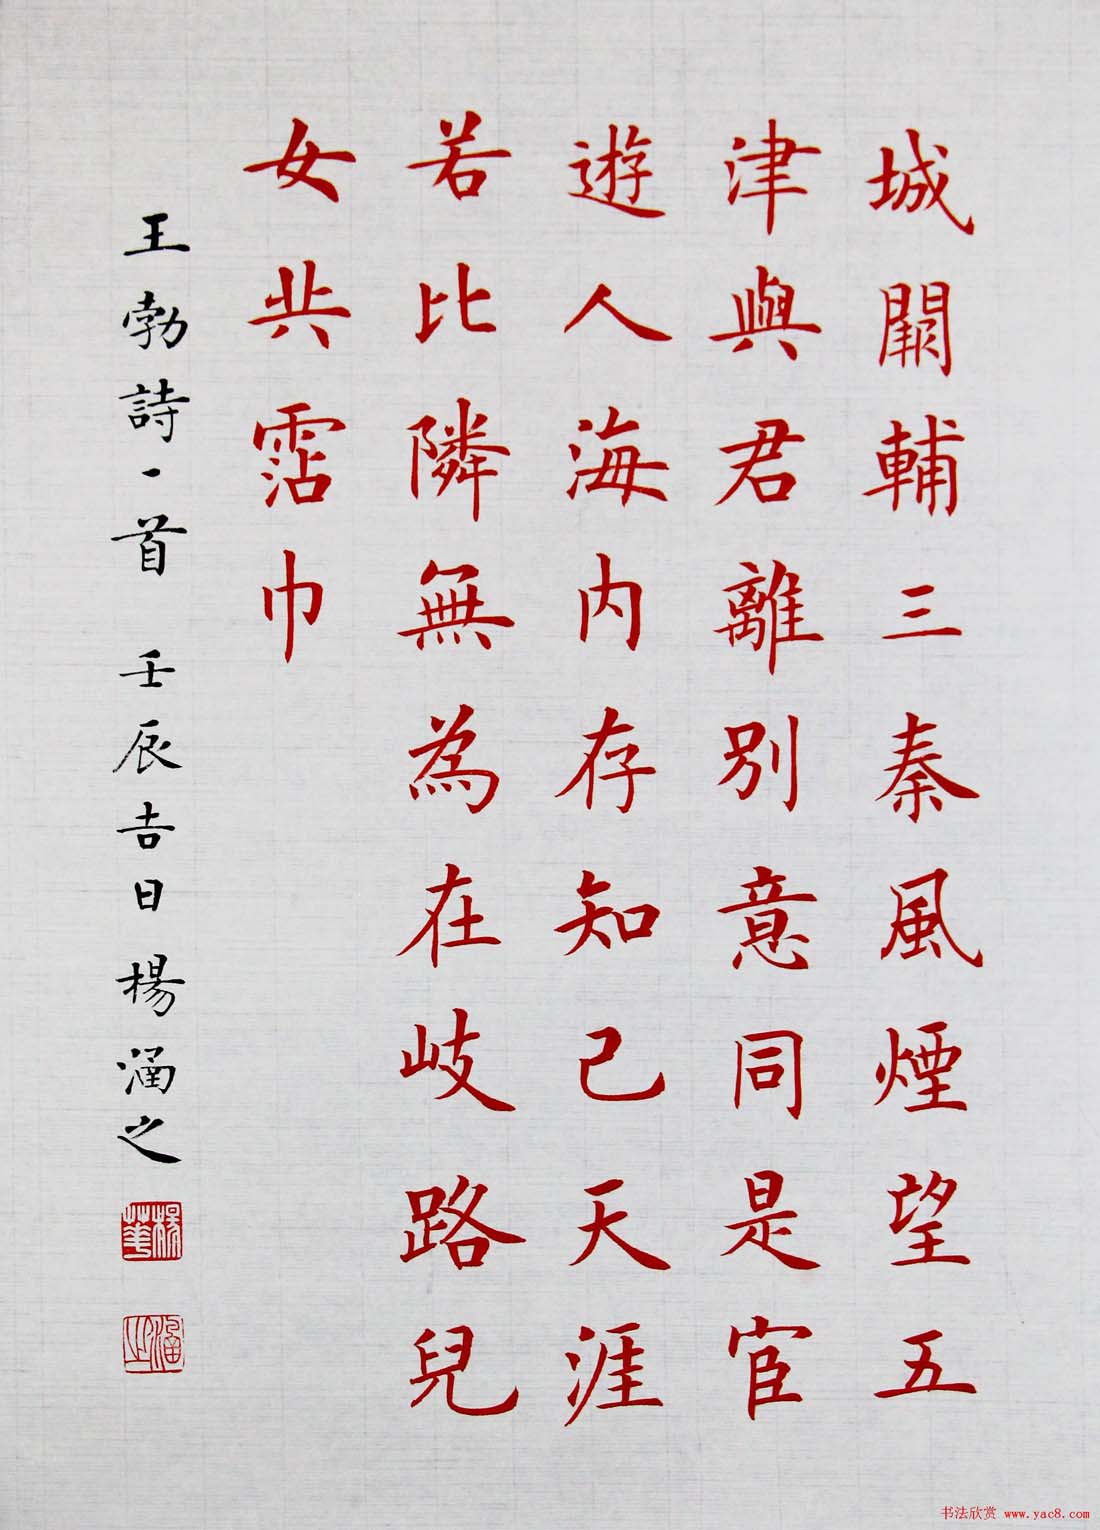 城闕輔三秦風煙望五
津與君離別意同是宦
遊人海内存知己天涯
若比隣無為在岐路兒
女共霑巾
王勃詩一首 壬辰吉日楊涵之
楊華
涵之
书法欣赏 www.yac8.com